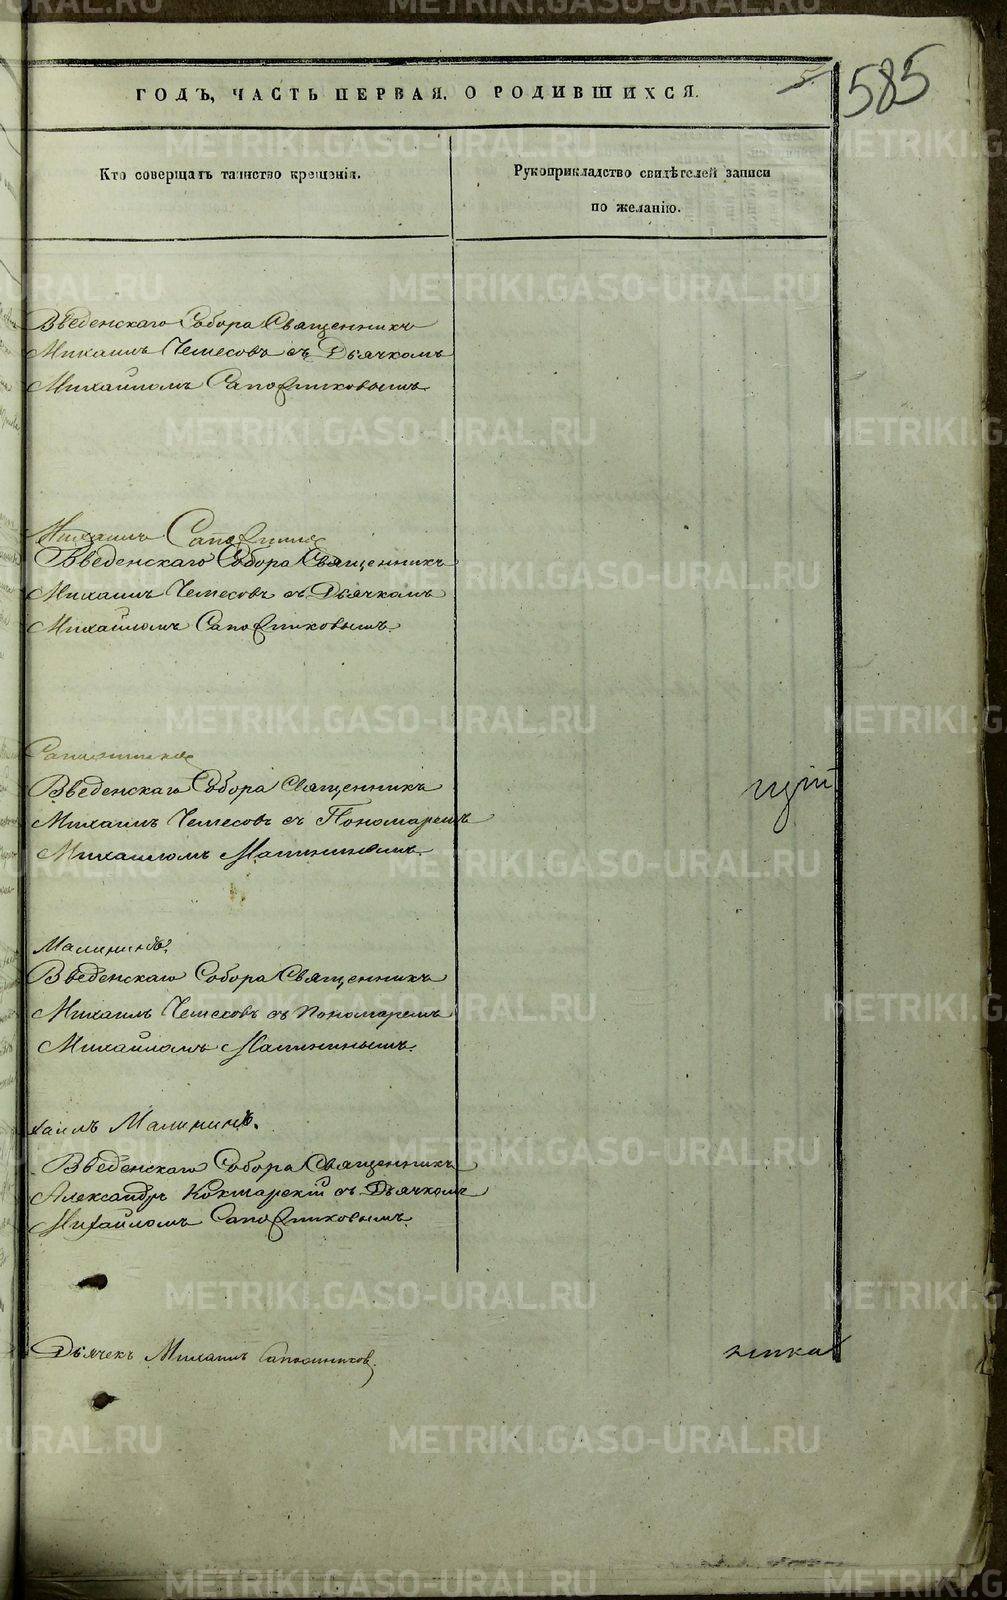 585
5.
ГОДЪ, ЧАСТЬ ПЕРВАЯ, О РОДИВШИХСЯ.
Кто совершалъ таинство крещенія.
Рукоприкладство свидѣтелей записи
по желанію.
Введенскаго Собора Священникъ
Михаилъ Чемесовъ съ Дьячкомъ
Михайломъ Сапожниковымъ.
Михаилъ
Введенскаго Собора Священникъ
Михаилъ Чемесовъ съ Дьячкомъ
Михайломъ Сапожниковымъ.
Введенскаго Собора Священникъ
Михаилъ Чемесовъ съ Пономаремъ
Михаиломъ Малининымъ.
Малининъ.
Введенскаго Собора Священникъ
Михаилъ Чемесовъ съ Пономаремъ
Михайломъ Малининымъ.
хаилъ Малининъ.
Введенскаго Собора Священникъ
Александръ Кокшарскій съ Дьячкомъ
Михайломъ Сапожниковымъ.
Дьячекъ Михаилъ Сапожников.
METRIKI.GASO-URAL.RU